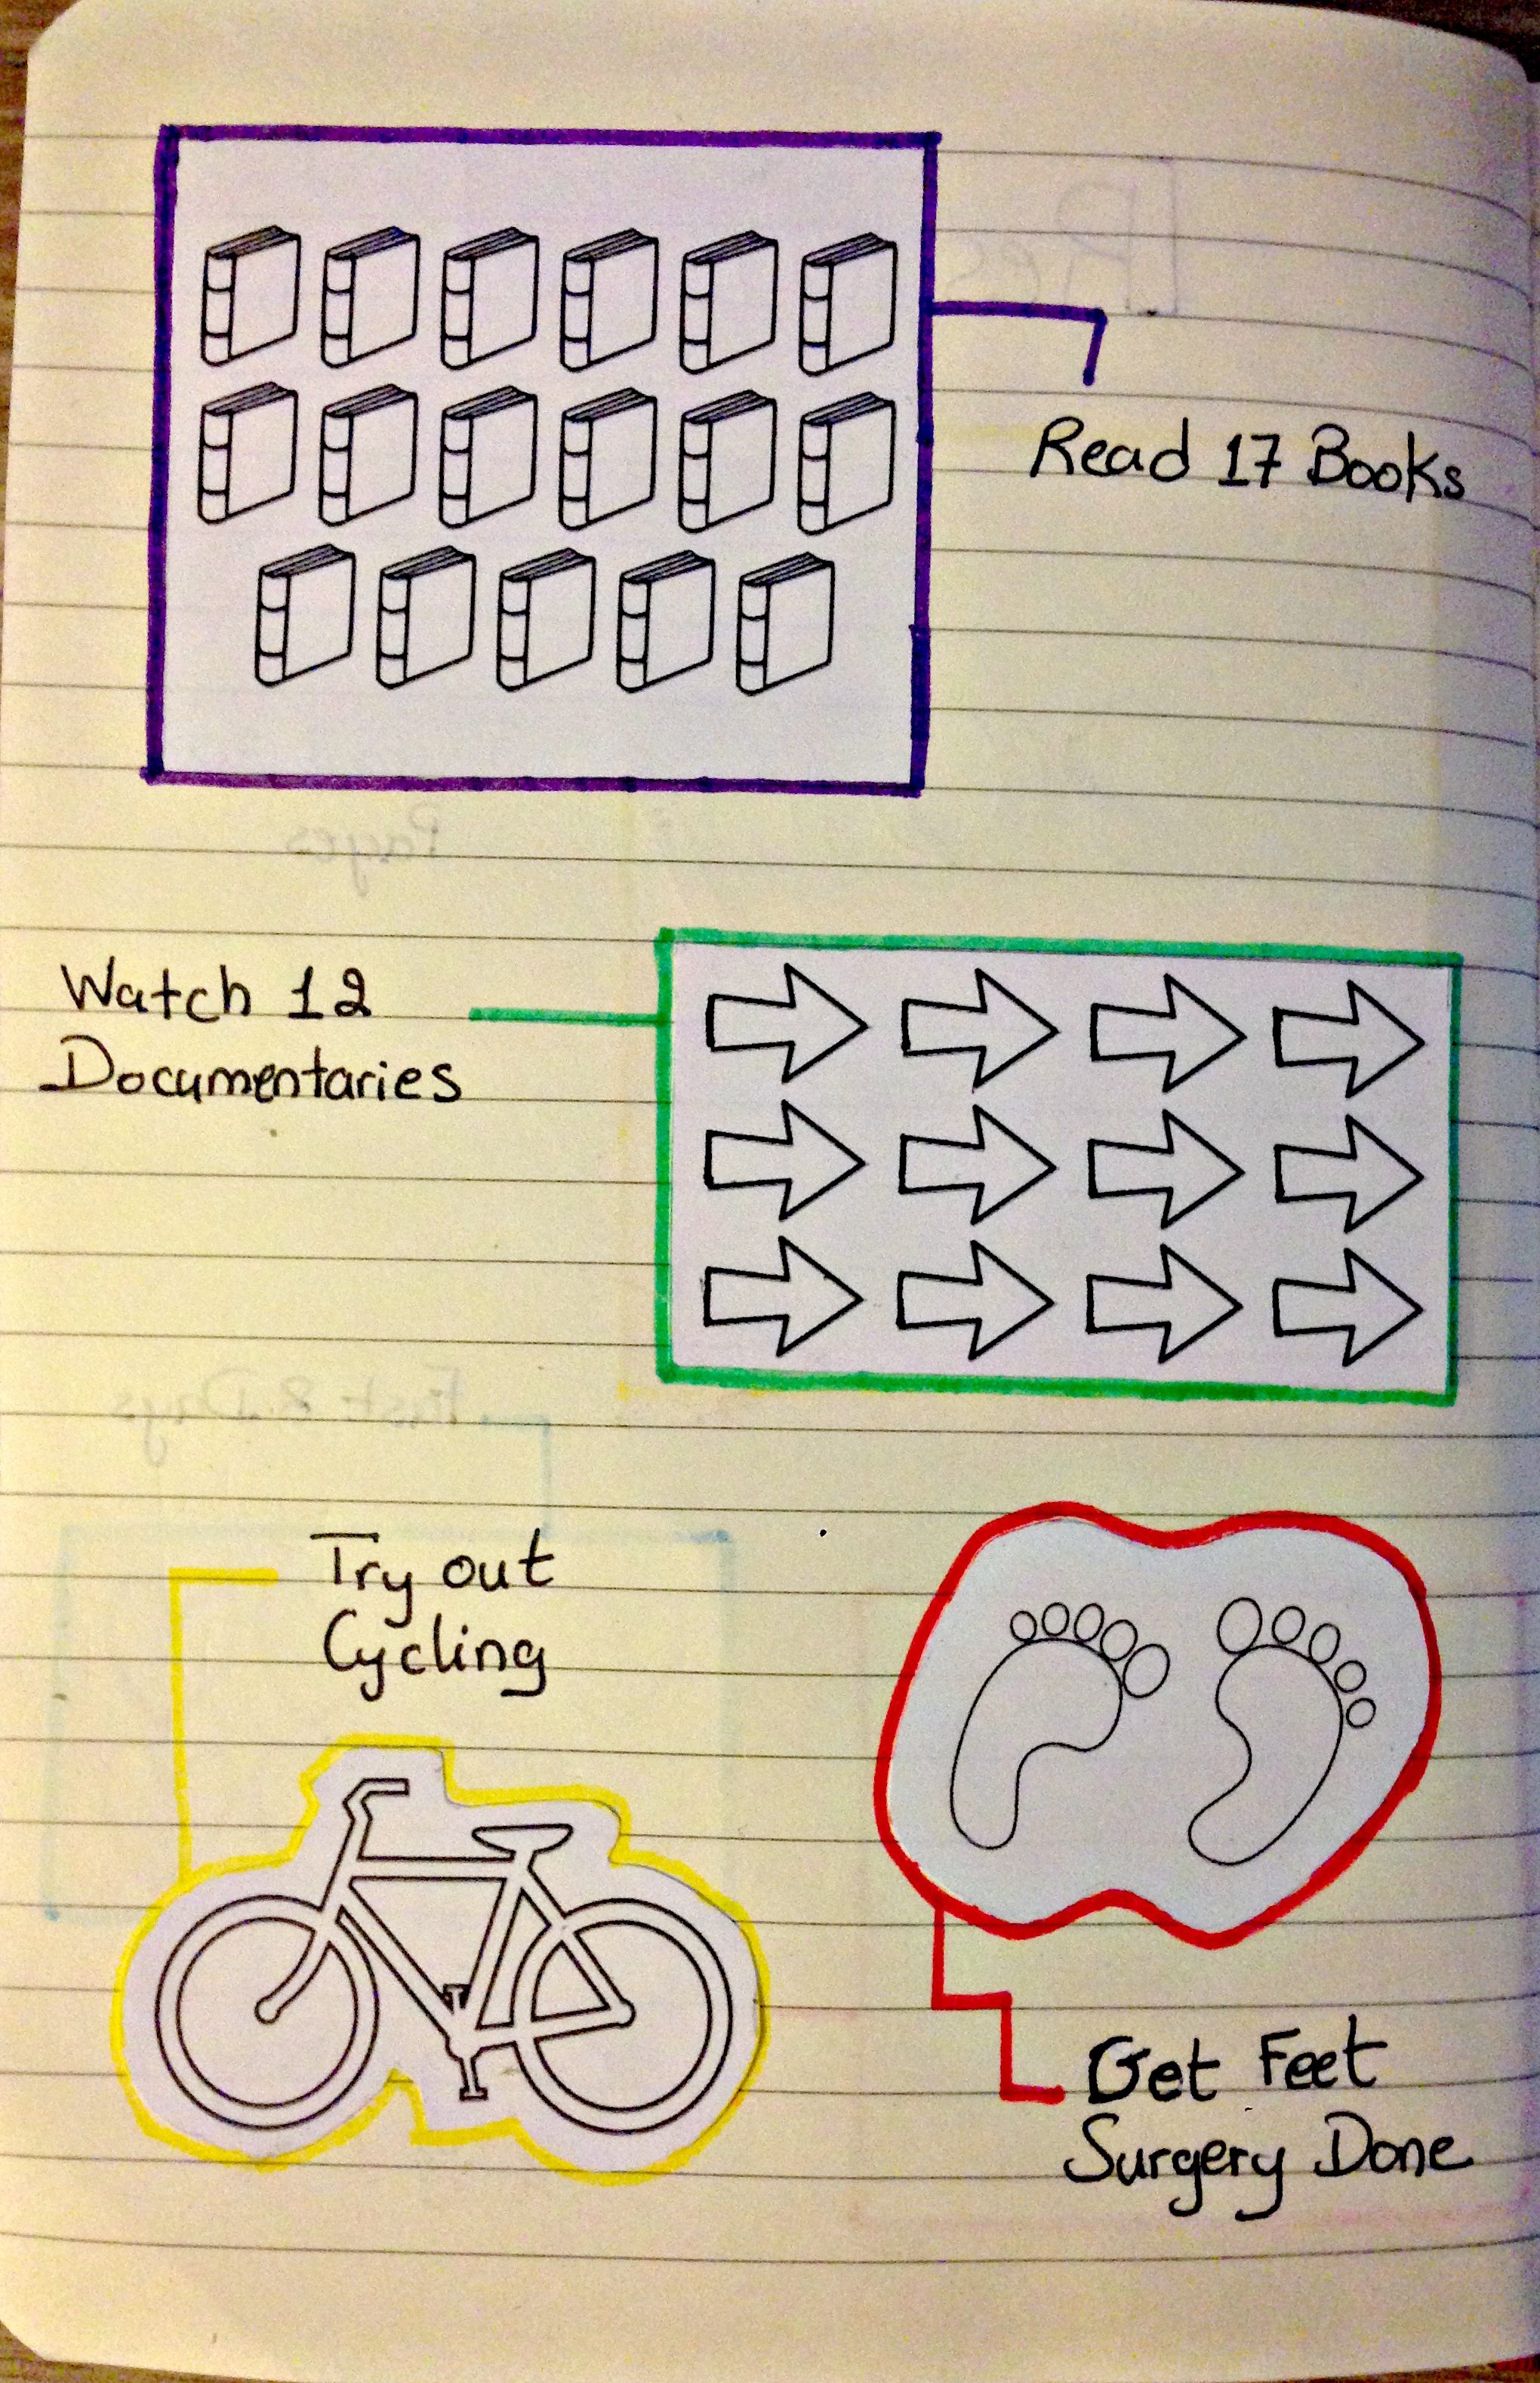 Read 17 Books
Watch 12
Documentaries
Try out
Cycling
Get Feet
Surgery Done